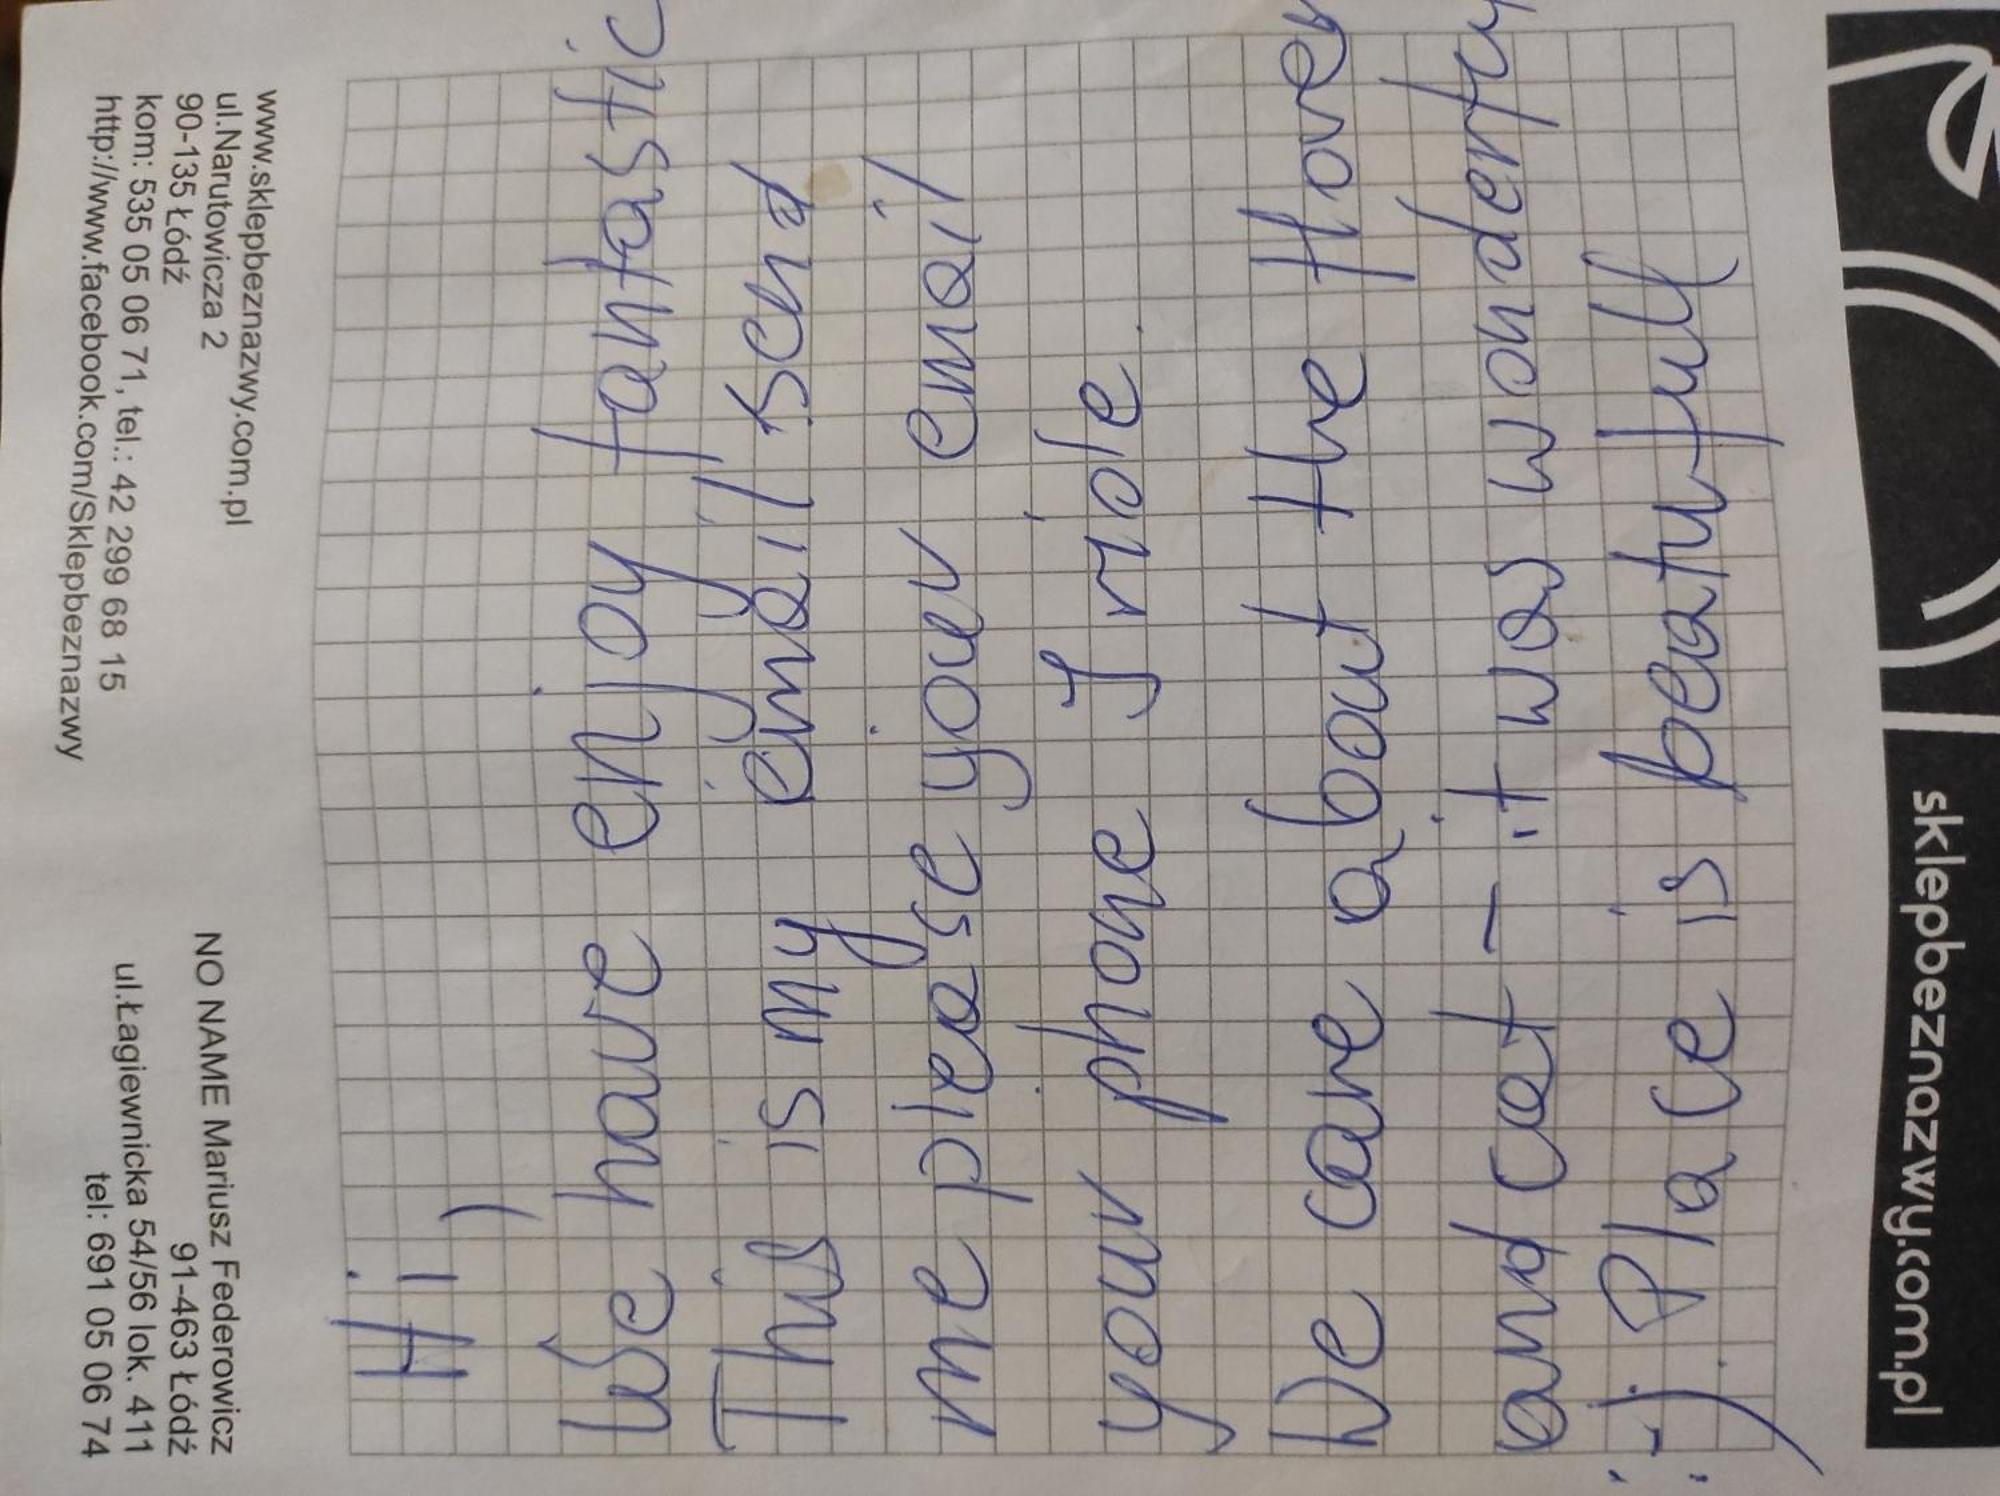 sklepbeznazwy.com.pl
Hi,
We have enjoy fantastic
is my send
me please your email
your phone
We care about the
and cat - it was
:) Place is beatufull
www.sklepbeznazwy.com.pl
ul.Narutowicza 2
90-135 Łódź
kom: 535 05 06 71, tel.: 42 299 68 15
http://www.facebook.com/Sklepbeznazwy
NO NAME Mariusz Federowicz
91-463 Łódź
ul.Łagiewnicka 54/56 lok. 411
tel: 691 05 06 74